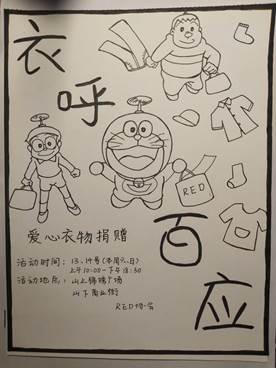 衣呼
百应
RED
爱心衣物捐赠
活动时间：13、14号(本周六、日)
上午10:00-下午18:30
活动地点：山上锦绣广场
山下商业街
RED切·会